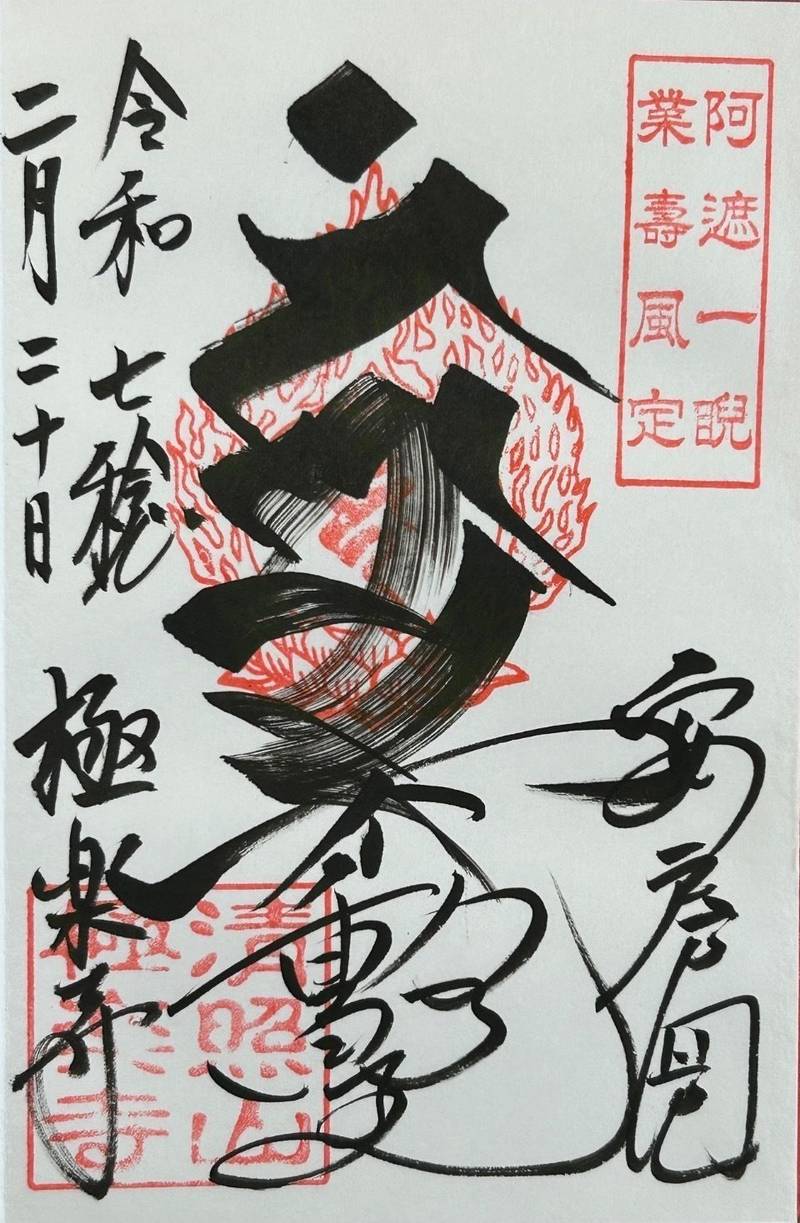 阿遮一睨
業壽風定
安房国
不動
令和七稔
二月二十日
極楽寺
清照山
極楽寺